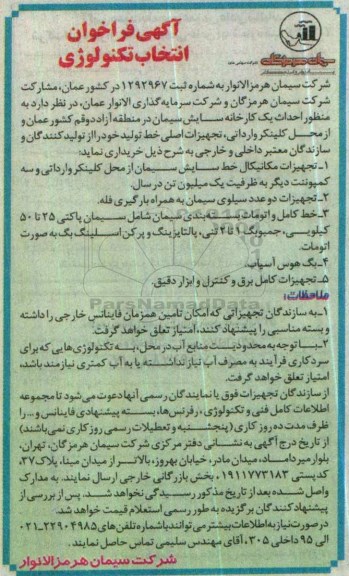 آگهی فراخوان
انتخاب تکنولوژی
شرکت سیمان هرمز الانوار به شماره ثبت ۱۲۹۲۹۶۷ در کشور عمان، مشارکت
شرکت سیمان هرمزگان و شرکت سرمایه گذاری الانوار عمان، در نظر دارد به
منظور احداث یک کارخانه سایش سیمان در منطقه آزاد دوقم کشور عمان و
از محل کلینکر وارداتی، تجهیزات اصلی خط تولید خود را از تولید کنندگان و
سازندگان معتبر داخلی و خارجی به شرح ذیل خریداری نماید:
۱- تجهیزات مکانیکال خط سایش سیمان از محل کلینکر وارداتی و سه
کمپوننت دیگر به ظرفیت یک میلیون تن در سال.
۲- تجهیزات دو عدد سیلوی سیمان به همراه بارگیری فله.
۳- خط کامل و اتومات بسته بندی سیمان شامل سیمان پاکتی ۲۵ تا ۵۰
کیلویی، جمبوبگ ۱ تا ۲ تنی، پالتایزینگ و پرکن اسلینگ بگ به صورت
اتومات.
۴- بگ هوس آسیاب.
۵- تجهیزات کامل برق و کنترل و ابزار دقیق.
ملاحظات:
۱- به سازندگان تجهیزاتی که امکان تامین همزمان فاینانس خارجی را داشته
و بسته مناسبی را پیشنهاد کنند، امتیاز تعلق خواهد گرفت.
۲- با توجه به محدودیت منابع آب در محل، به تکنولوژی هایی که برای
سرد کاری فرآیند به مصرف آب نیاز نداشته یا به آب کمتری نیازمند باشد،
امتیاز تعلق خواهد گرفت.
از سازندگان تجهیزات فوق یا نمایندگان رسمی آنها دعوت می شود تا مجموعه
اطلاعات کامل فنی و تکنولوژی، رفرنس ها، بسته پیشنهادی فاینانس و... را
ظرف مدت ده روز کاری (پنجشنبه و تعطیلات رسمی روز کاری نمی باشند)
از تاریخ درج آگهی به نشانی دفتر مرکزی شرکت سیمان هرمزگان، تهران،
بلوار میرداماد، میدان مادر، خیابان بهروز، بالاتر از میدان مینا، پلاک ۳۷،
کدپستی ۱۹۱۱۷۷۳۱۸۳، بخش بازرگانی خارجی ارسال نمایند. به مدارک
واصل شده بعد از تاریخ مذکور رسیدگی نخواهد شد. پس از بررسی از
پیشنهاد کنندگان برگزیده به طور رسمی استعلام قیمت خواهد شد.
در صورت نیاز به اطلاعات بیشتر می توانند با شماره تلفن های ۲۲۹۰۴۹۸۵-۰۲۱
الی ۹۵ داخلی ۳۰۵، آقای مهندس سلیمی تماس حاصل نمایند.
شرکت سیمان هرمز الانوار